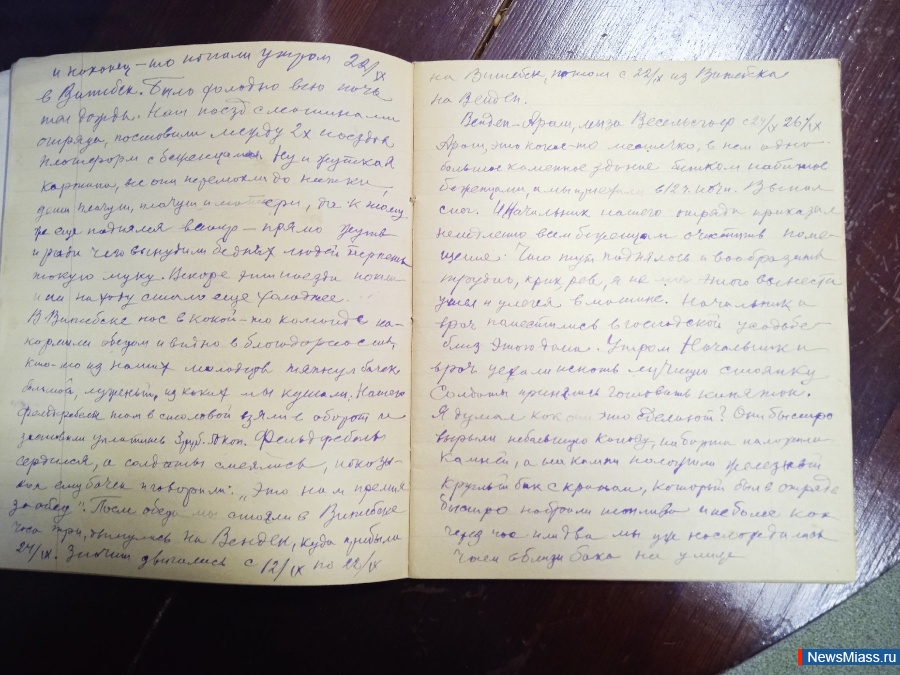 и наконец-то попали утром 22/IX
в Витебск. Было холодно всю ночь
шел дождь. Наш поезд с машинами
отряда, поставили между 2х поездов
платформ с беженцами. Ну и жуткая
картина, все они перемокли до нитки
дети плачут, плачут и матери, да к тому
же еще поднялся ветер – прямо жуть
и ради чего вынудили бедных людей терпеть
такую муку. Вскоре эти поезда пошли
и на ходу стало еще холоднее...
В Витебске нас в какой-то команде на-
кормили обедом и видно в благодарность,
кто-то из наших молодцов тяпнул бачок
большой, луженый, из каких мы кушали. Нашего
фельдфебеля там в столовой взяли в оборот и
заставили уплатить 3 руб. 50 коп. Фельдфебель
сердился, а солдаты смеялись, показы-
вая ему бачок и говорили: „Это нам премия
за обед". После обеда мы стояли в Витебске
часа три, двинулись на Венден, куда прибыли
24/IX. Значит двигались с 12/IX по 22/IX
на Витебск, потом с 22/IX из Витебска
на Венден.
Венден-Арам, мыза с 24/IX 26/IX
Арам, это какое-то местечко, в нем одно
большое каменное здание битком набитое
беженцами, а мы приехали в 12 ч. ночи. Выпал
снег. И Начальник нашего отряда приказал
немедленно всем беженцам очистить поме-
щение. Чего тут поднялось и вообразить
трудно, крик, рев, я не мог этого вынести
ушел и улегся в машине. Начальник и
врач поместились в господской усадьбе
близ этого дома. Утром Начальник и
врач уехали искать лучшую стоянку
Солдаты принялись готовить кипяток.
Я думал как они это сделают? Они быстро
вырыли небольшую канаву, на бока наложили
камней, а на камни положили железный
круглый бак с краном, который был в отряде
быстро набрали топлива и не более как
через час или два мы уже наслаждались
чаем вблизи бака на улице
NewsMiass.ru